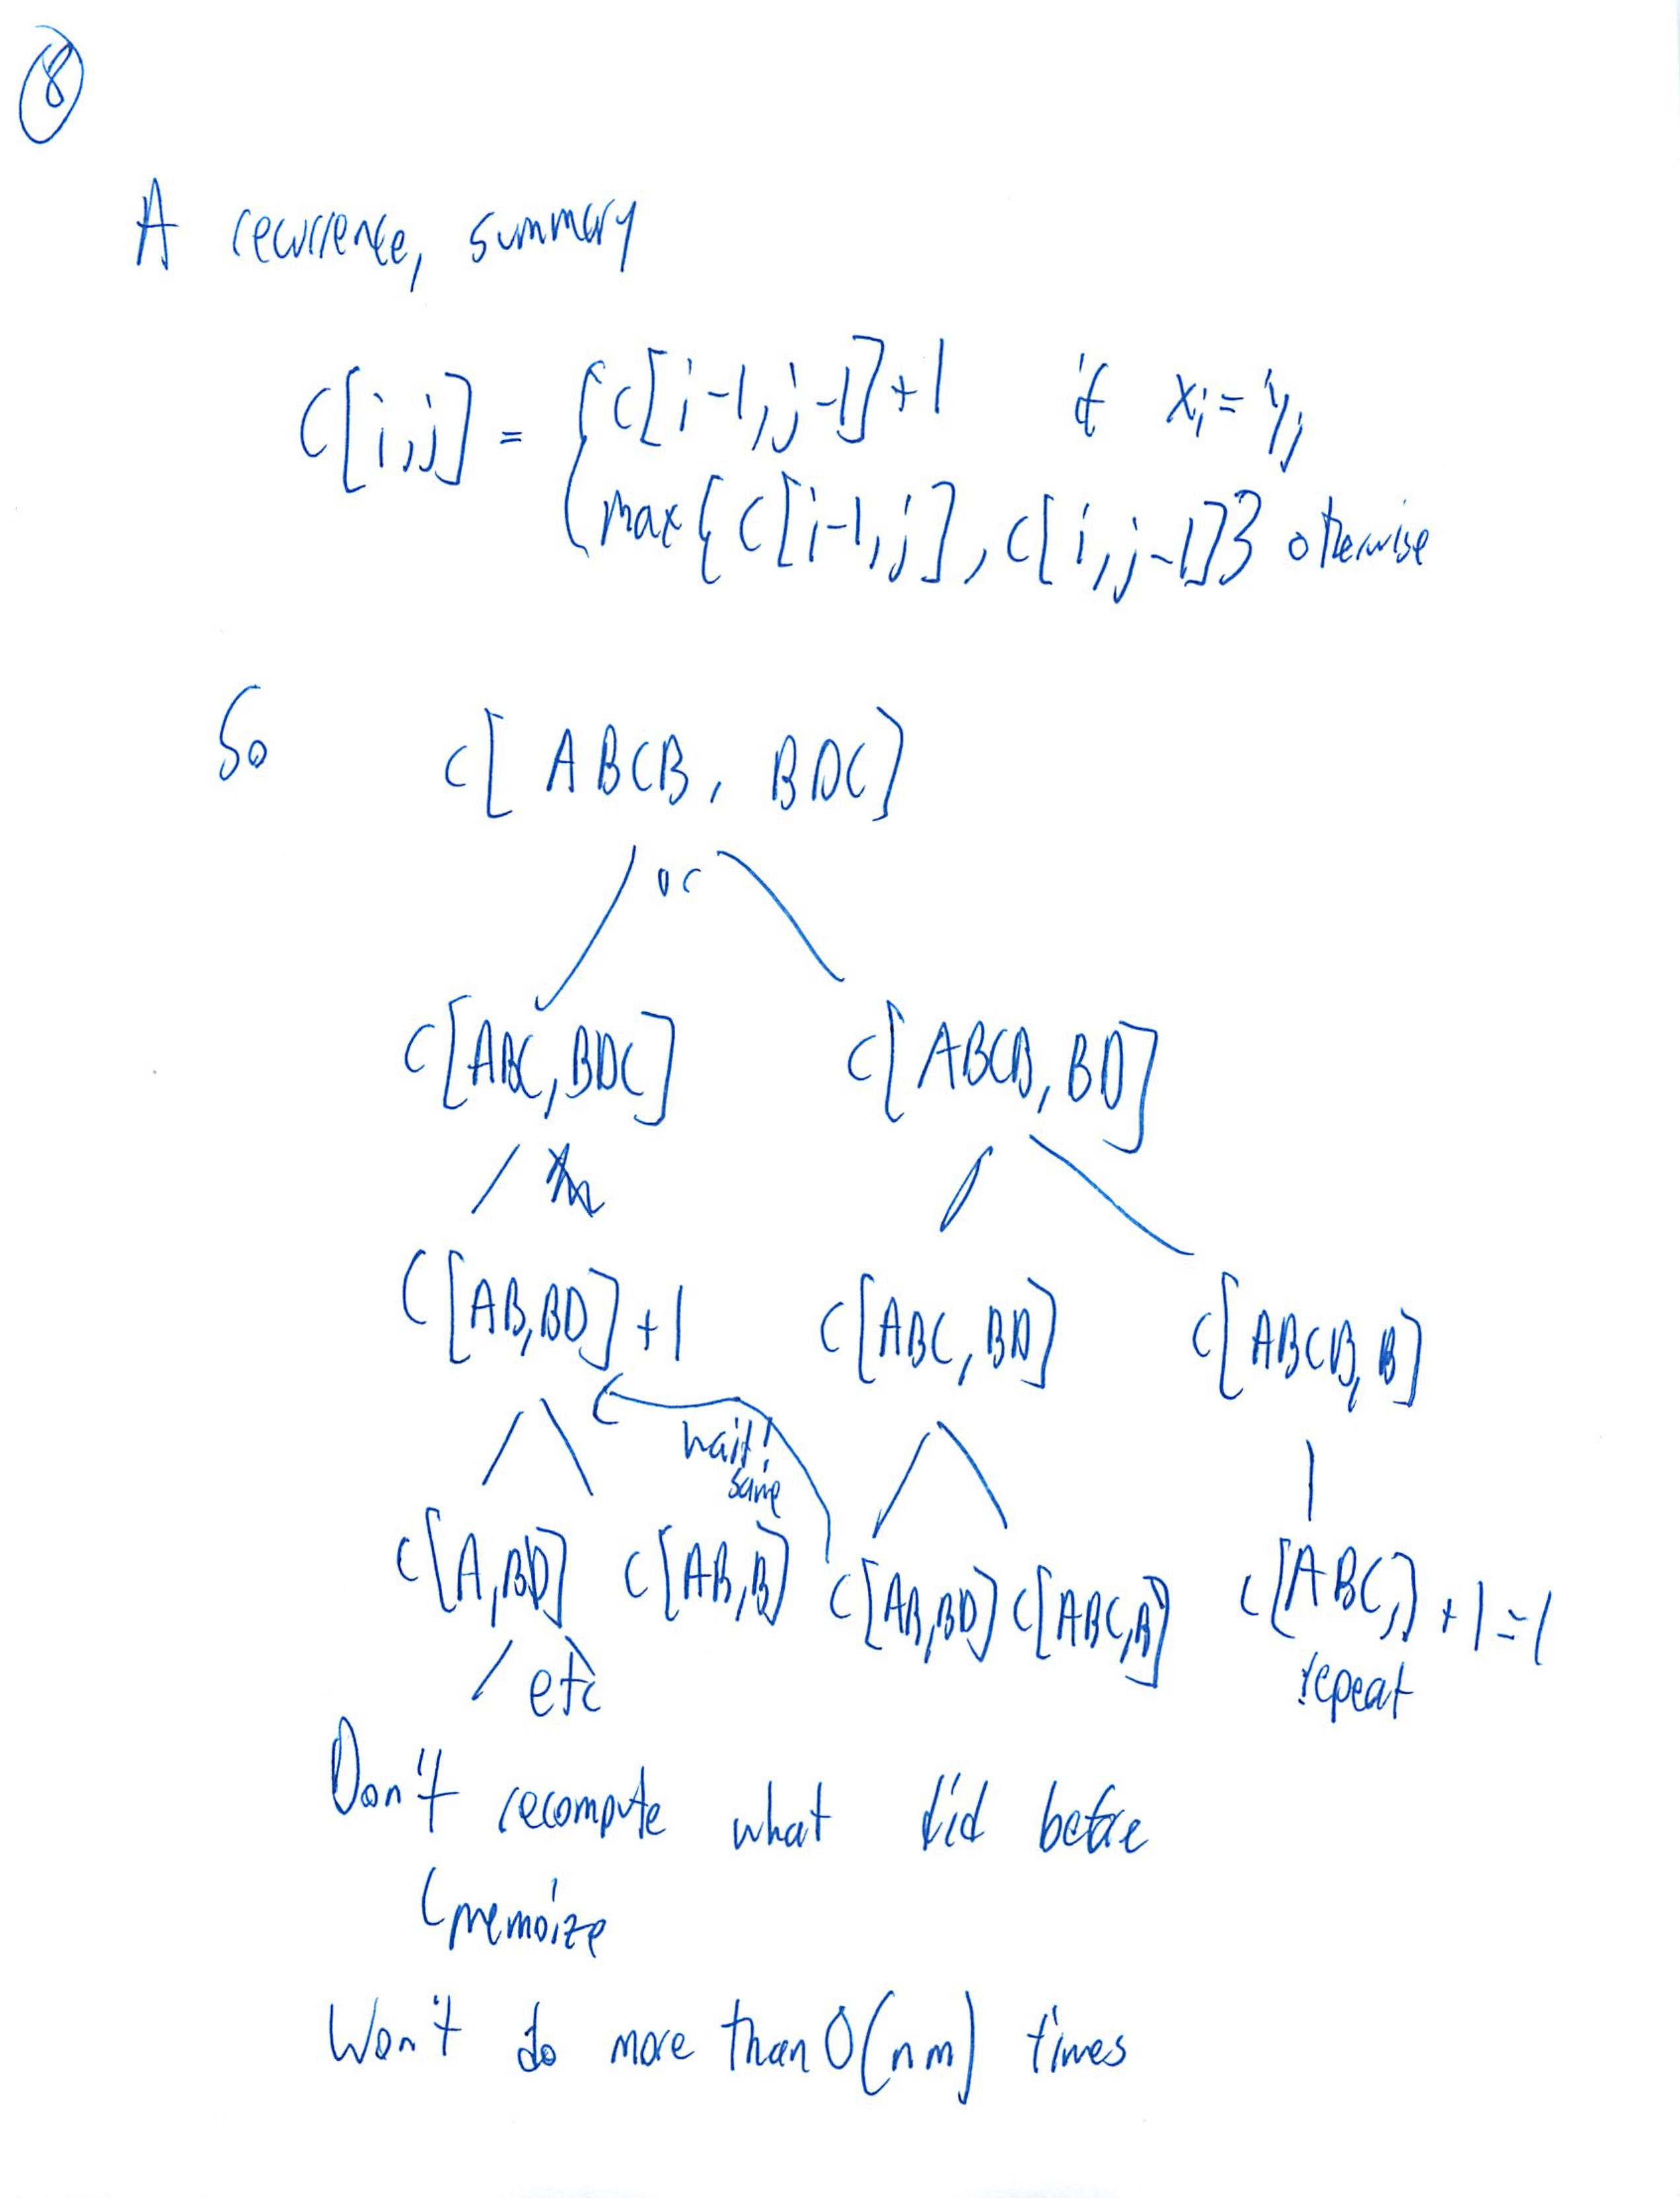 8
A recurrence, summary
C[i,j] = { C[i-1,j-1]+1 if xi = yj
max{C[i-1,j], C[i,j-1]} otherwise
So C[ABCB, BDC]
or
C[ABC,BDC] C[ABCB,BD]
C[AB,BD]+1 C[ABC,BD] C[ABCB,B]
wait!
same
C[A,BD] C[AB,B] C[AB,BD] C[ABC,B] C[ABC,]+1=1
etc repeat
Don't recompute what did before
memoize
Won't do more than O(nm) times